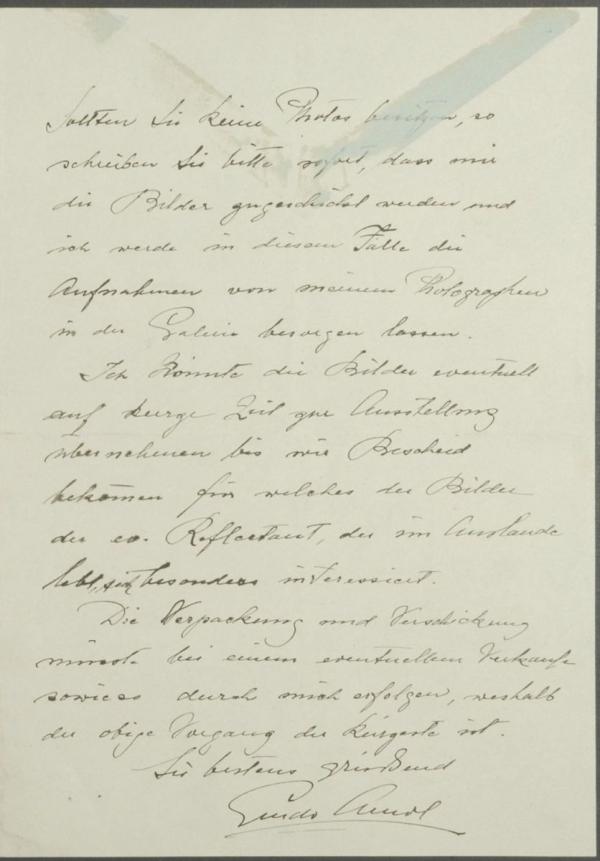 Sollten Sie keine Photos besitzen, so
schreiben Sie bitte sofort, dass mir
die Bilder zugeschickt werden und
ich werde in diesem Falle die
Aufnahmen von meinem Photographen
in der Galerie besorgen lassen.
Ich könnte die Bilder eventuell
auf kurze Zeit zur Ausstellung
übernehmen bis wir Bescheid
bekommen für welches der Bilder
der ev. Reflectant, der im Auslande
lebt, sich besonders interessiert.
Die Verpackung und Verschickung
müsste bei einem eventuellem Verkaufe
sowieso durch mich erfolgen, weshalb
der obige Vorgang der kürzeste ist.
Sie bestens grüßend
Guido Arnot